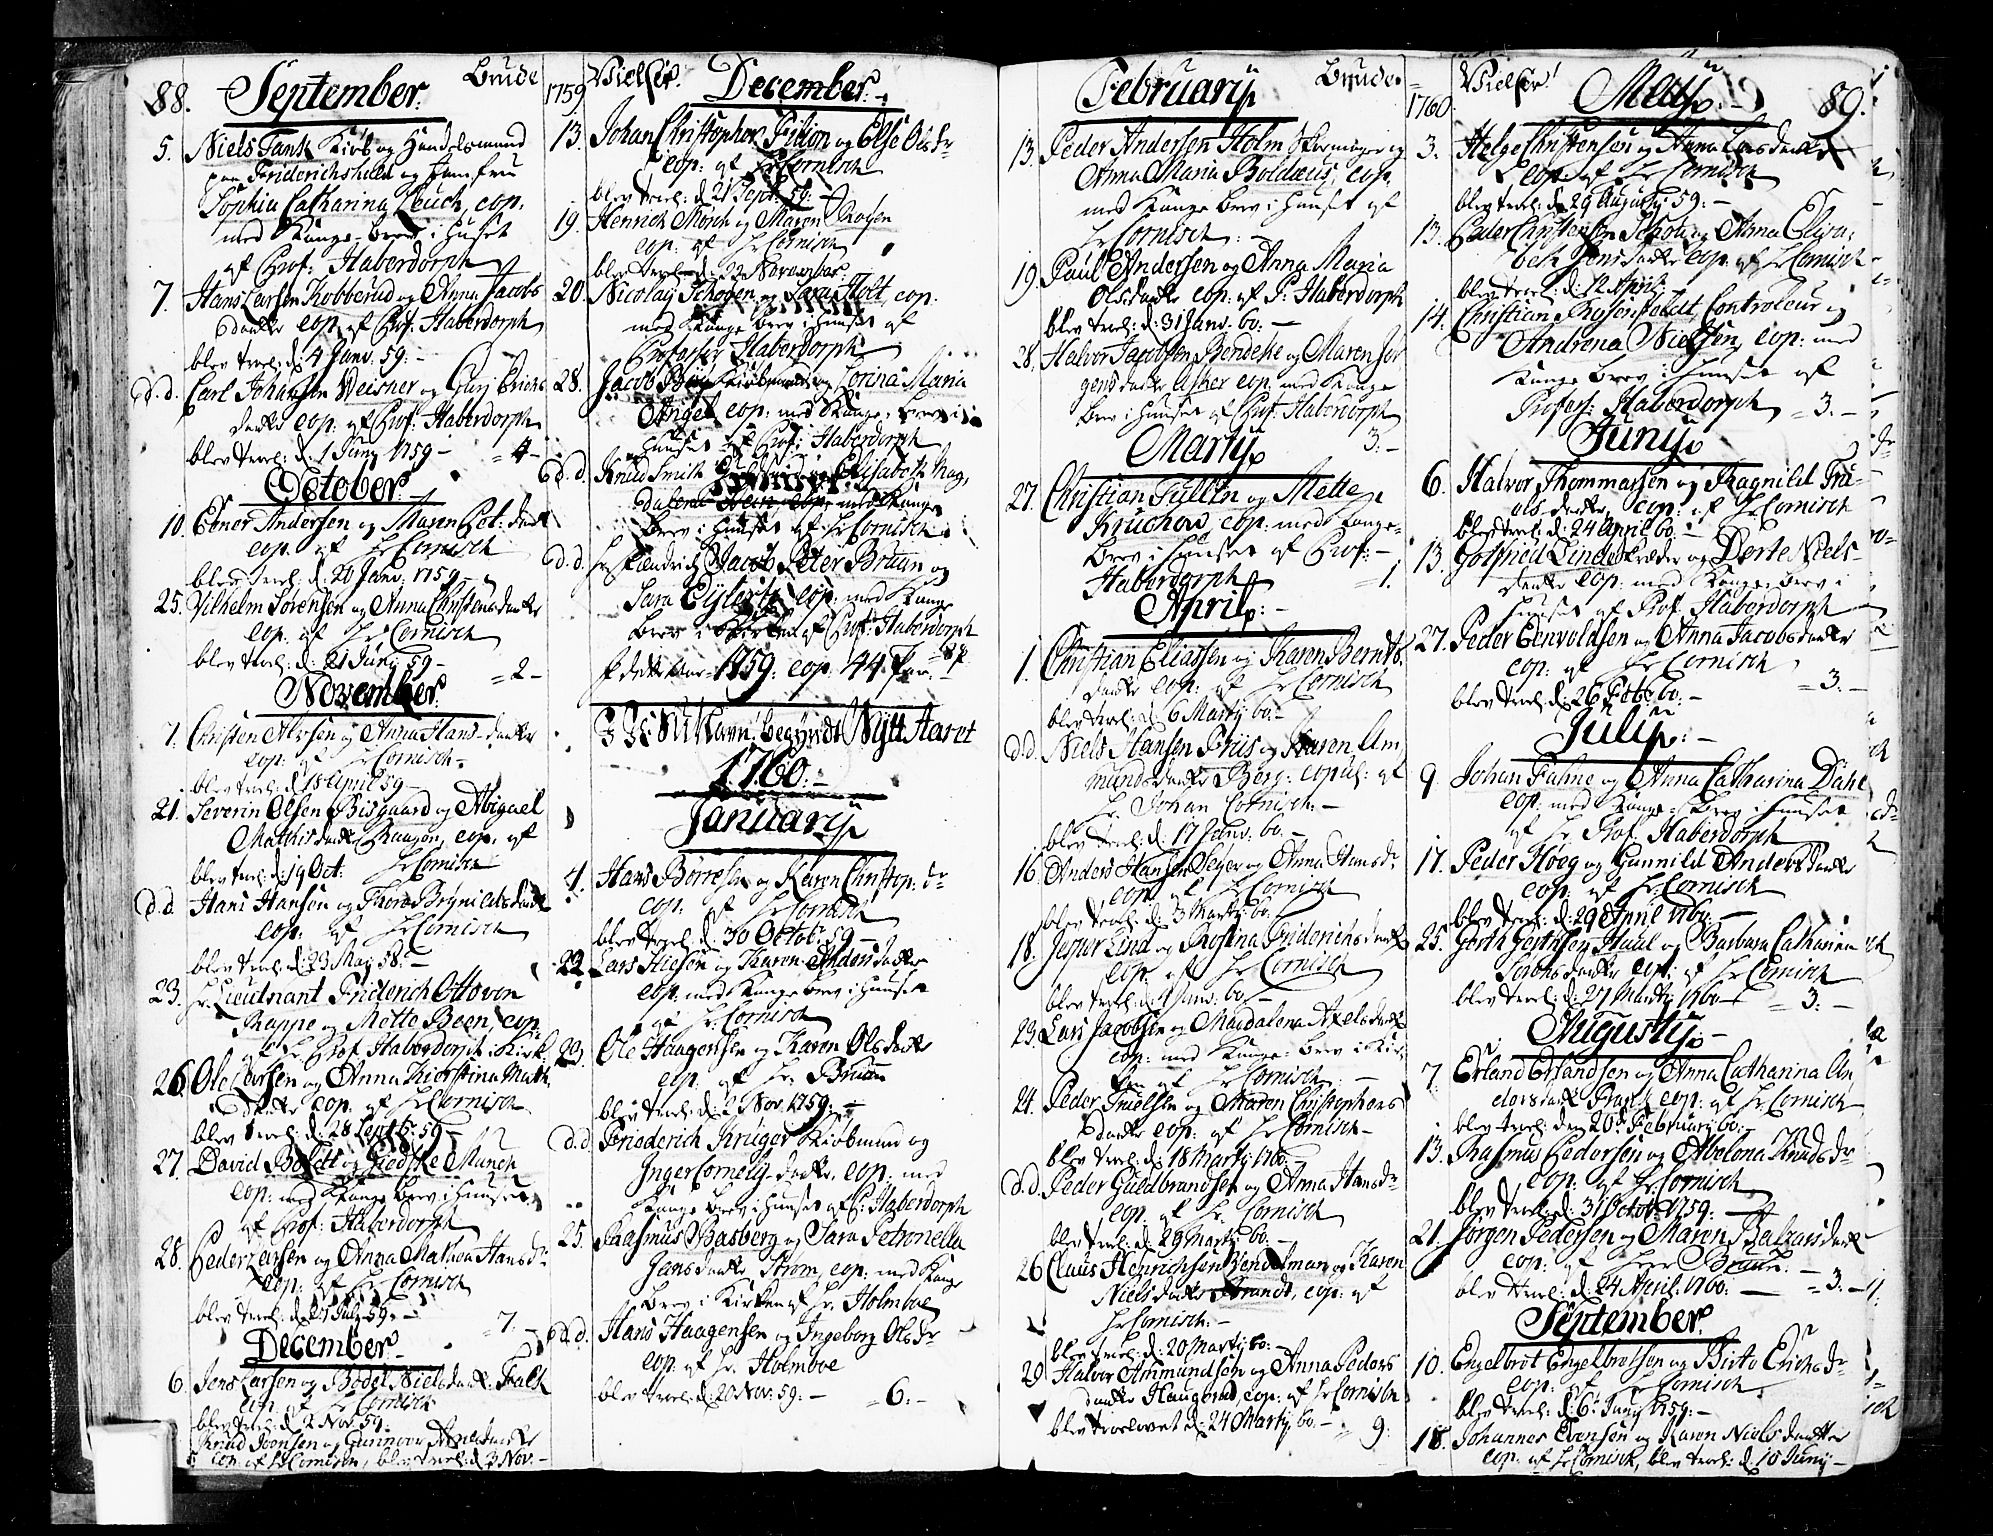 88. September. Brude
5. Niels Tank Kiøb og Handelsmand
paa Friderichshald og Jomfru
Sophia Catharina Leuch, cop.
med Konge-brev i Huset
af Prof: Haberdorph
7. Hans Larsen Kobberud og Anna Jacobs
daatter cop. af Prof. Haberdorph
blev trol: d: 4 Janv. 59. -
d.d. Carl Johansen Meisner og Erichs
daatter cop. af Prof: Haberdorph
blev trol: d: 1 Juny 1759 - = 4 -
October.
10. Ebner Andersen og Maren Pet: daatt
cop. af Hr Cornisch
blev trol: d: 20 Janv. 1759 -
25. Vilhelm Sørensen og Anna Christensdaatter
cop. af Hr Cornisch
blev trol: d: 21 Juny 59 - = 2 -
November.
7. Christen Ansen og Anna Hans-daatter
cop. af Hr Cornisch.
blev trol: d: 18 April 59 -
21. Severin Olsen Bisgaard og Abigael
Mathisdaatter Kraagøe, cop. af
blev trol: d: 19 Oct. Hr Cornisch
d.d. Hans Hansen og Thore Brynildsdaatt
cop. af Hr Cornisch
blev trol: d: 23 May 58. -
23. Hr Lieutnant Friderich Otto von
Rappe og Mette Been, cop.
af Hr Prof. Haberdorph i Kirk.
26. Ole Larsen og Anna Kierstina Math.
daatter cop. af Hr Cornisch
blev trol: d: 28 Sept 59 -
27. David Boldt og Giedske Munch
cop. med Konge brev i Huuset
af Prof: Haberdorph
28. Peder Larsen og Anna Mathea Hansdr
cop. af Hr Cornisch
blev trol: d: July 59. - = 7. -
December.
6. Jens Larsen og Bodel Nielsdaatt. Falck
cop. af Hr Cornisch
blev trol: d: 2 Nov. 59.
Knud Joensen og Gunnor daatter
cop. af Hr Cornisch, blev trol: d: 3 Nov. -
1759 Vielser. December. -
13. Johan Christopher og Else Olsdr
cop. af Hr Cornisch
blev trol: d: 21 Sept: 59. -
19. Henrich Mørch og Maren Rosen
cop: af Hr Cornisch
blev trol: d: 22 November.
20. Nicolay Schogen og Sara Holt, cop:
med Konge brev i Huuset af
Professor Haberdorph
28. Jacob Kiøbmand og Corina Maria
Angel cop: med Konge-brev i
Huuset af Prof: Haberdorph
d.d. Knud Smith og Elisabeth Mag,
dalena cop. med Konge
brev i Huuset af Hr Cornisch.
d.d. Hr Jacob Peter Bruun og
Sara Eylertz cop: med Konge
brev i Kirken af Prof: Haberdorph
I dette aar 1759. cop. 44. Par.
I JEsu Navn! begyndt Nytt Aaret
1760. -
Januarii
4. Hans Børresen og Karen Christop: dr
cop. af Hr Cornisch
blev trol: d: 30 Octobr 59 -
22. Lars Niesen og Karen Andersdaatter
cop. med Konge brev i Huuset
af Hr. Cornisch
23. Ole Haagensen og Karen Olsdaatter
cop. af Hr. Bruun
blev trol: d: 2 Nov 1759. -
d.d. Friederich Krüger Kiøbmand og
Inger Cornely-daatter, cop. med
Konge brev i Huuset af P: Haberdorph
25. Rasmus Basberg og Sara Petronella
Jansdaatter Strøm, cop: med Konge
brev i Kirken af Hr. Holmboe
d.d. Hans Haagensen og Ingeborg Olsdr
cop: af Hr. Holmboe
blev trol: d: 20 Nov: 59: - = 6: -
Februarii Brude
13. Peder Andersen Holm og
Anna Maria Boldæus, cop.
med Konge brev i Huuset af
Hr Cornisch. -
19. Paul Andersen og Anna Maria
Olsdaatter cop: af P: Haberdorph
blev trol: d: 31 Janv. 60. -
28. Halvor Jacobsen Bendeke og Maren Jør
gensdaatter Asker cop: med Konge
brev i Huuset af Prof. Haberdorph
3. -
Martii
27. Christian Tullin og Mette
Kruchow, cop: med Konge-
brev i Huuset af Prof:
Haberdorph = 1.
April. -
1. Christian Eliassen og Karen Bernts
daatter cop: af Hr Cornisch
blev trol: d: 6 Marty 60. -
d.d. Niels Hansen Friis og Karen Am
mundsdaatter Borg: copul: af
Hr. Johan Cornisch. -
blev trol: d: 17 Janv. 60. -
16. Anders Hansen Seyer og Anna Hansdr
cop: af Hr Cornisch
blev trol: d: 3 Marty 60.
18. Jesper Lind og Rosina Friderichsdaatt
cop. af Hr Cornisch
blev trol: d: Janv. 60. -
23. Lars Jacobsen og Magdalena Axelsdaatt
cop: med Konge-brev i Kir-
ken af Hr Cornisch. -
24. Peder Truelsen og Maren Christophers
daatter cop: af Hr Cornisch -
blev trol: d: 18 Marty 1760. -
d.d. Peder Guldbrandsen og Anna Hansdr
cop. af Hr. Cornisch
blev trol: d: 29 Marty 60. -
26 Claus Henrichsen Bendelman og Karen
Nielsdaatter Brandt, cop: af
Hr Cornisch: -
blev trol: d: 20 Marty 60: -
29 Halvor Ammundsen og Anna Peders
daatter Haugerud, cop: af Hr Cornisch
blev troelovet d: 24 Marty 60. - = 9.
1760. Vielser! Maji. - 89.
3. Helge Christensen og Anna Larsdaatter
cop: af Hr Cornisch
blev trol: d: 29 Augusty 59. -
13. Peder Christensen Schou og Anna Elisa,
beth Jensdaatter cop: af Hr Cornisch
blev trol: d: 12 April. -
14. Christian Rosenfeldt, Controleur og
Andrena Nielsen, cop: med
Konge brev i Huuset af
Profess: Haberdorph = 3. -
Junii
6. Halvor Thommassen og Ragnild Tru-
els daatter, cop: af Hr Cornisch
blev trol: d: 24 April 60. -
13. Gotfried Linde og Dorte Niels-
daatter cop: med Konge-brev i
Huuset af Prof. Haberdorph
27. Peder Evenvoldsen og Anna Jacobsdaatter
cop: af Hr Cornisch
blev trol: d: 26 Feb: 60. - = 3. -
Julii. -
9. Johan Fahne og Anna Catharina Dahl
cop: med Konge-brev i Huuset
af Hr. Prof. Haberdorph
17. Peder Høeg og Gunnild Andersdaatter
cop: af Hr Cornisch
blev trol: d: 29 April 1760. -
25. Gerth og Barbara Catharina
daatter cop: af Hr Cornisch
blev trol: d: 27 Marty 1760 - = 3. -
Augusti. -
7. Erland Erlandsen og Anna Catharina An,
dersdaatt cop: af Hr Cornisch
blev trol: den 20de Februari 60. -
13. Rasmus Pedersen og Abelona Knudsdr
cop: af Hr Cornisch
blev trol: d: 31 Octob: 1759. -
21. Jørgen Pedersen og Maren Baltzarsdaatt
cop: af Herr Bruun. -
blev trol: d: 24 April. 1760. - = 3. -
September.
10. Engelbret Engelbretsen og Birte Erichsdr
cop: af Hr Cornisch
blev trol: d: 6 Juny 1759. -
18. Johannes Evensen og Karen Nielsdaatter
cop: af Hr Cornisch, blev trol: d: 10 Juny -